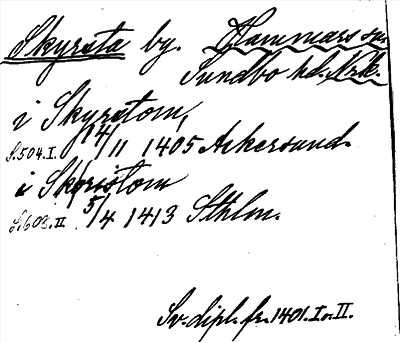 Skyrsta by. Hammars sn
Sundbo hd. Nrk.
i Skyrstom,
S.504.I. 14/11 1405 Askersund.
i Skyristom
S.602.II 5/4 1413 Sthlm.
Sv. dipl. fr. 1401. I o. II.